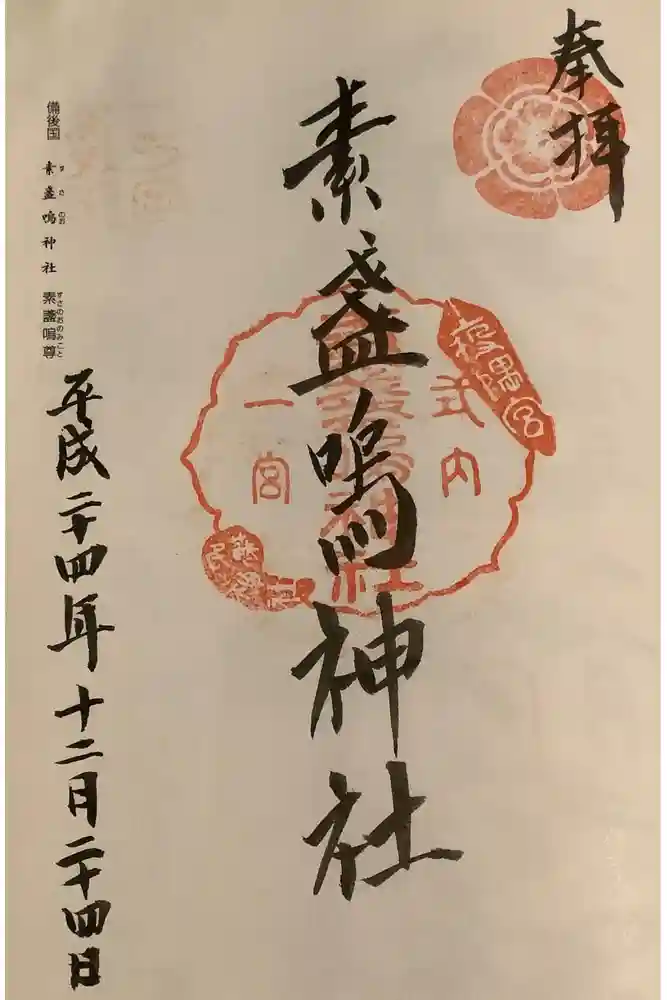 奉拝
素盞嗚神社
式内
一宮
素盞嗚神社
蘇民将来
備後国 素盞嗚神社 素盞嗚尊
すさのお
すさのおのみこと
平成二十四年十二月二十四日